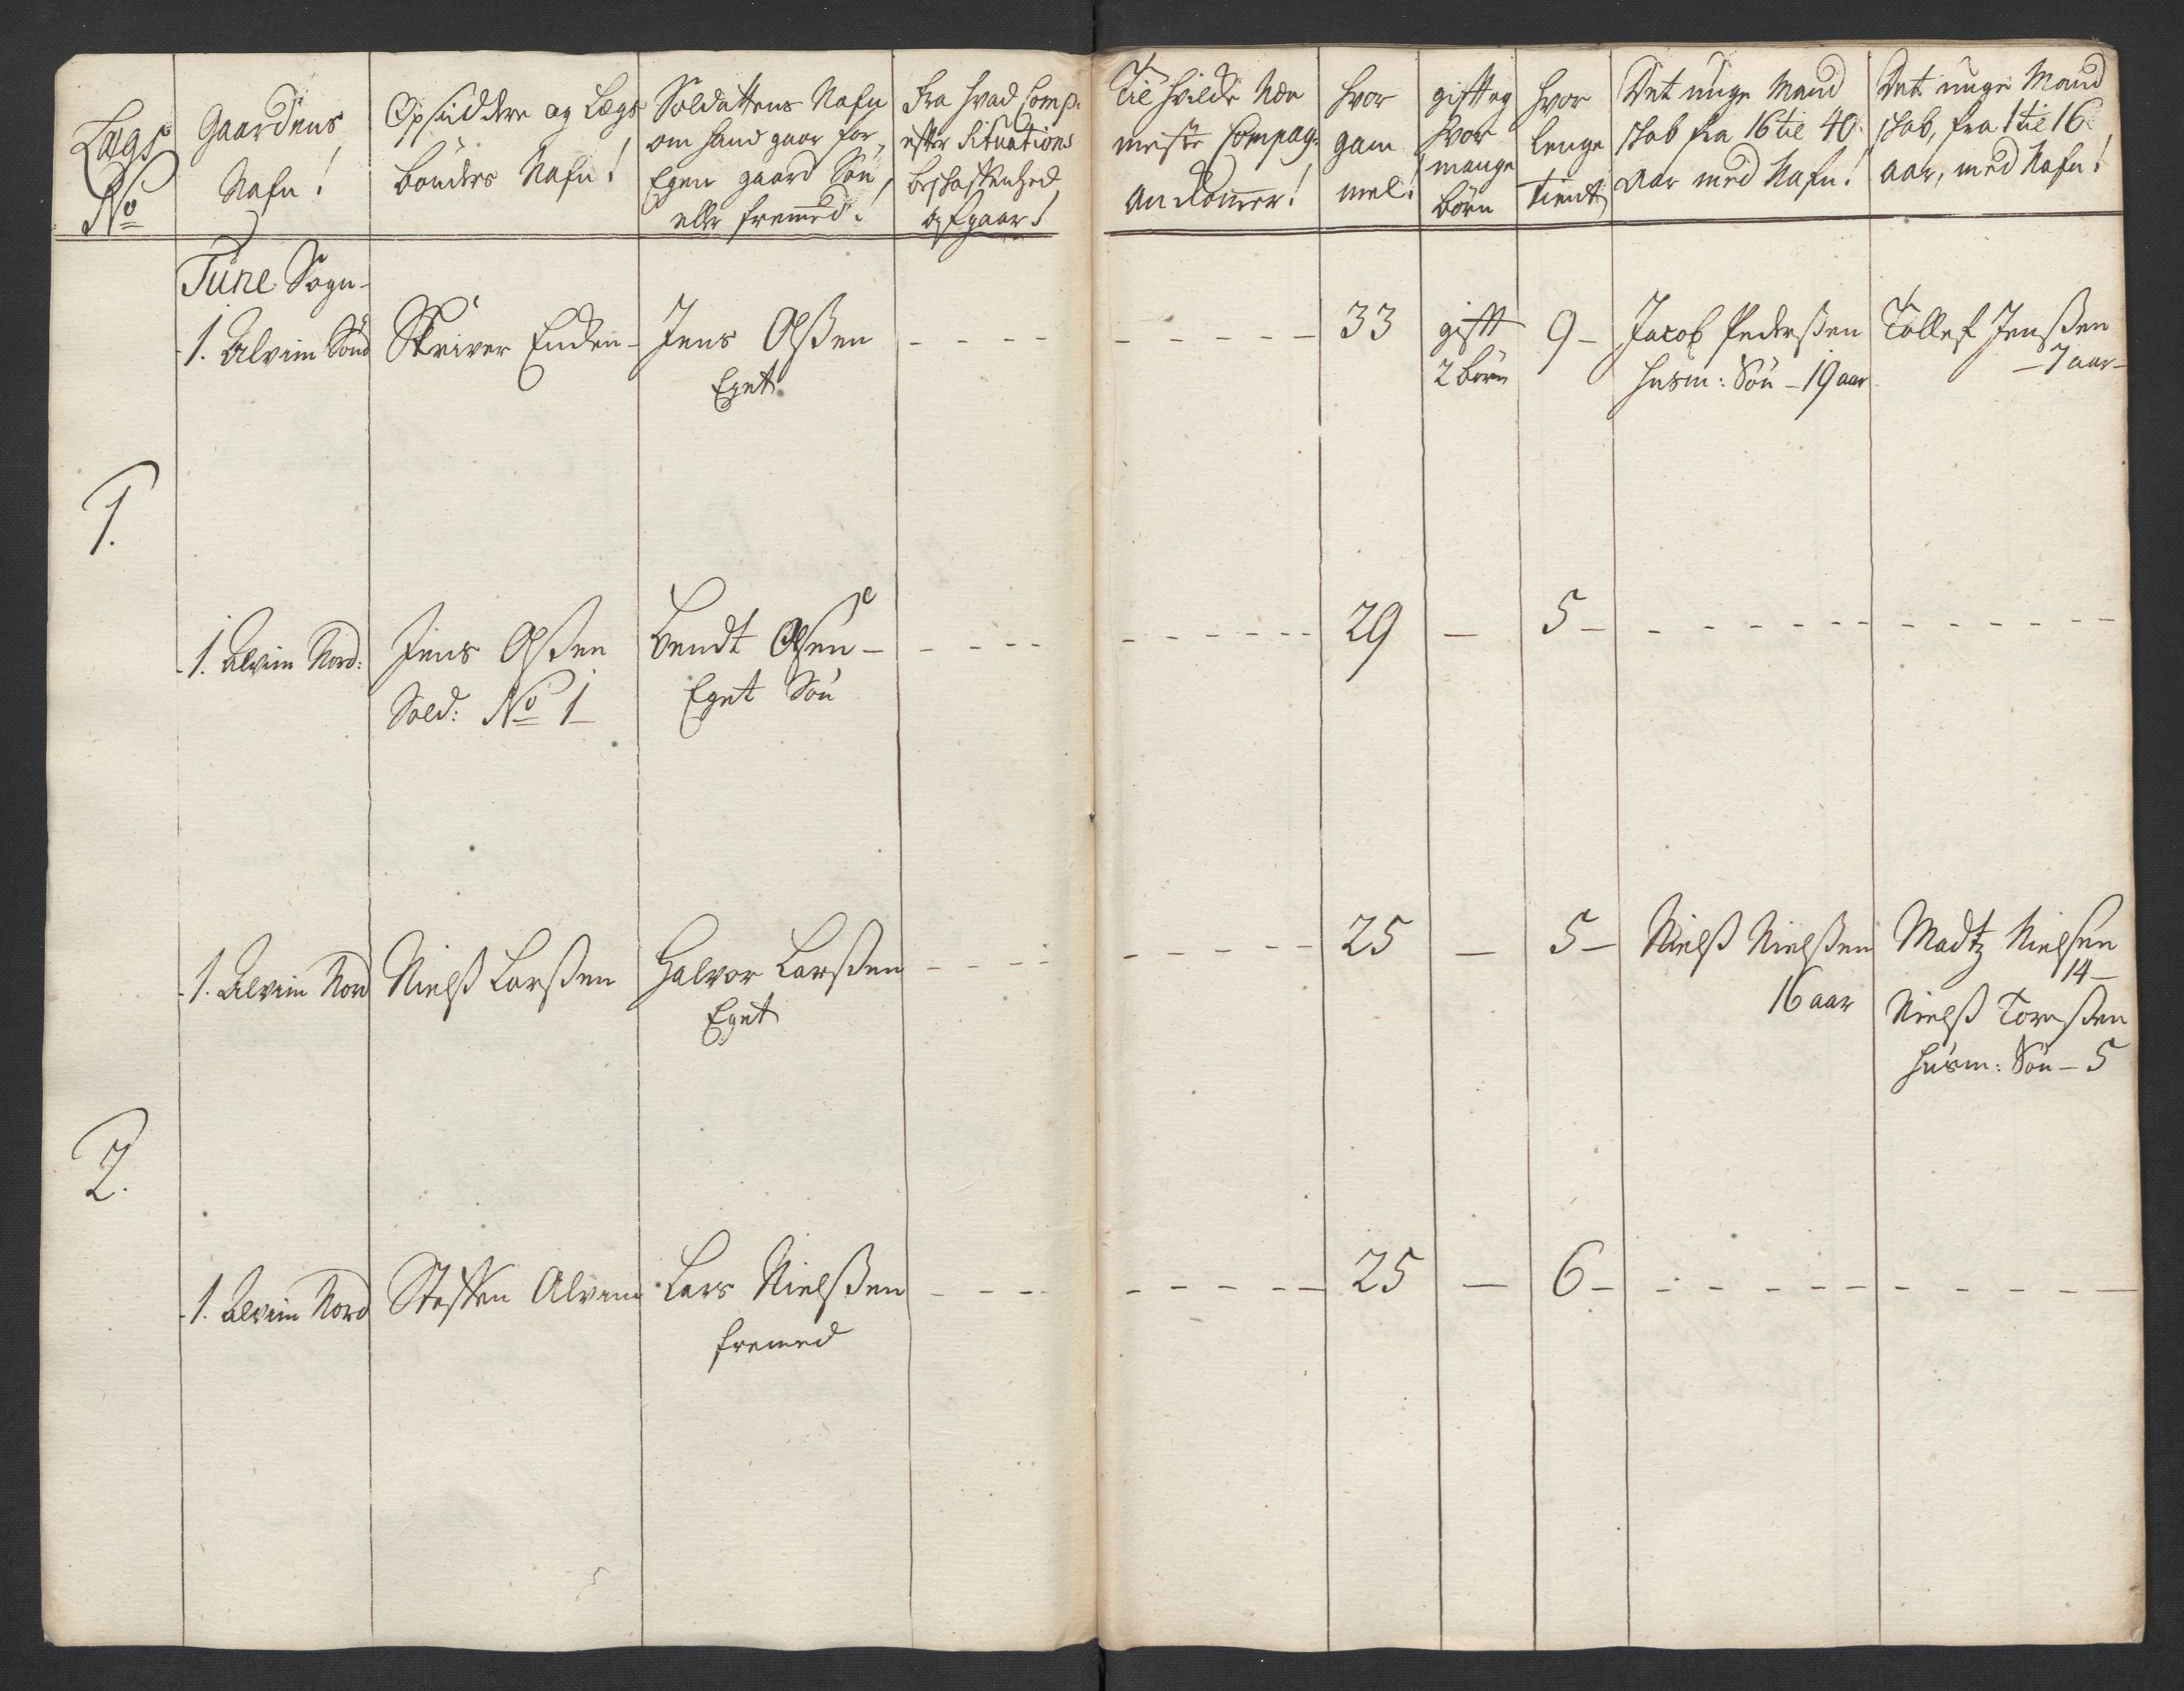 Lægs
No
Gaardens
Nafn!
Opsiddere og Lægs
bönders Nafn!
Soldattens Nafn
om hand gaar for
Egen gaard Søn
eller fremmed!
Fra hvad Comp:
efter Situations
beschaffenhed
afgaar!
Til hvilcke Nær
meste Compag:
ankommer!
hvor
gam
mel!
gifft og
hvor
mange
börn
hvor
lenge
tient
Det unge Mand
skab fra 16 til 40
aar med Nafn!
Det unge Mand
skab, fra 1 til 16
aar, med Nafn!
Tune Sogn
1.
1. Alvim Sönd
Skriver Enden
Jens Olßen
Eget
33
gifft
2 börn
9
Jacob Pederßen
husm: Søn - 19 aar
Tollef Jenßen
7 aar
1. Alvim Nord:
Jens Olßen
Sold: No 1
Bendt Olsen
Eget Søn
29 — 5
2.
1. Alvim Nord
Nielß Larßen
Halvor Larßen
Eget
25 — 5
Nielß Nielßen
16 aar
Madtz Nielsen
14
Nielß Toreßen
husm: Søn - 5
1. Alvim Nord
Steffen Alvim
Lars Nielßen
fremed
25 — 6